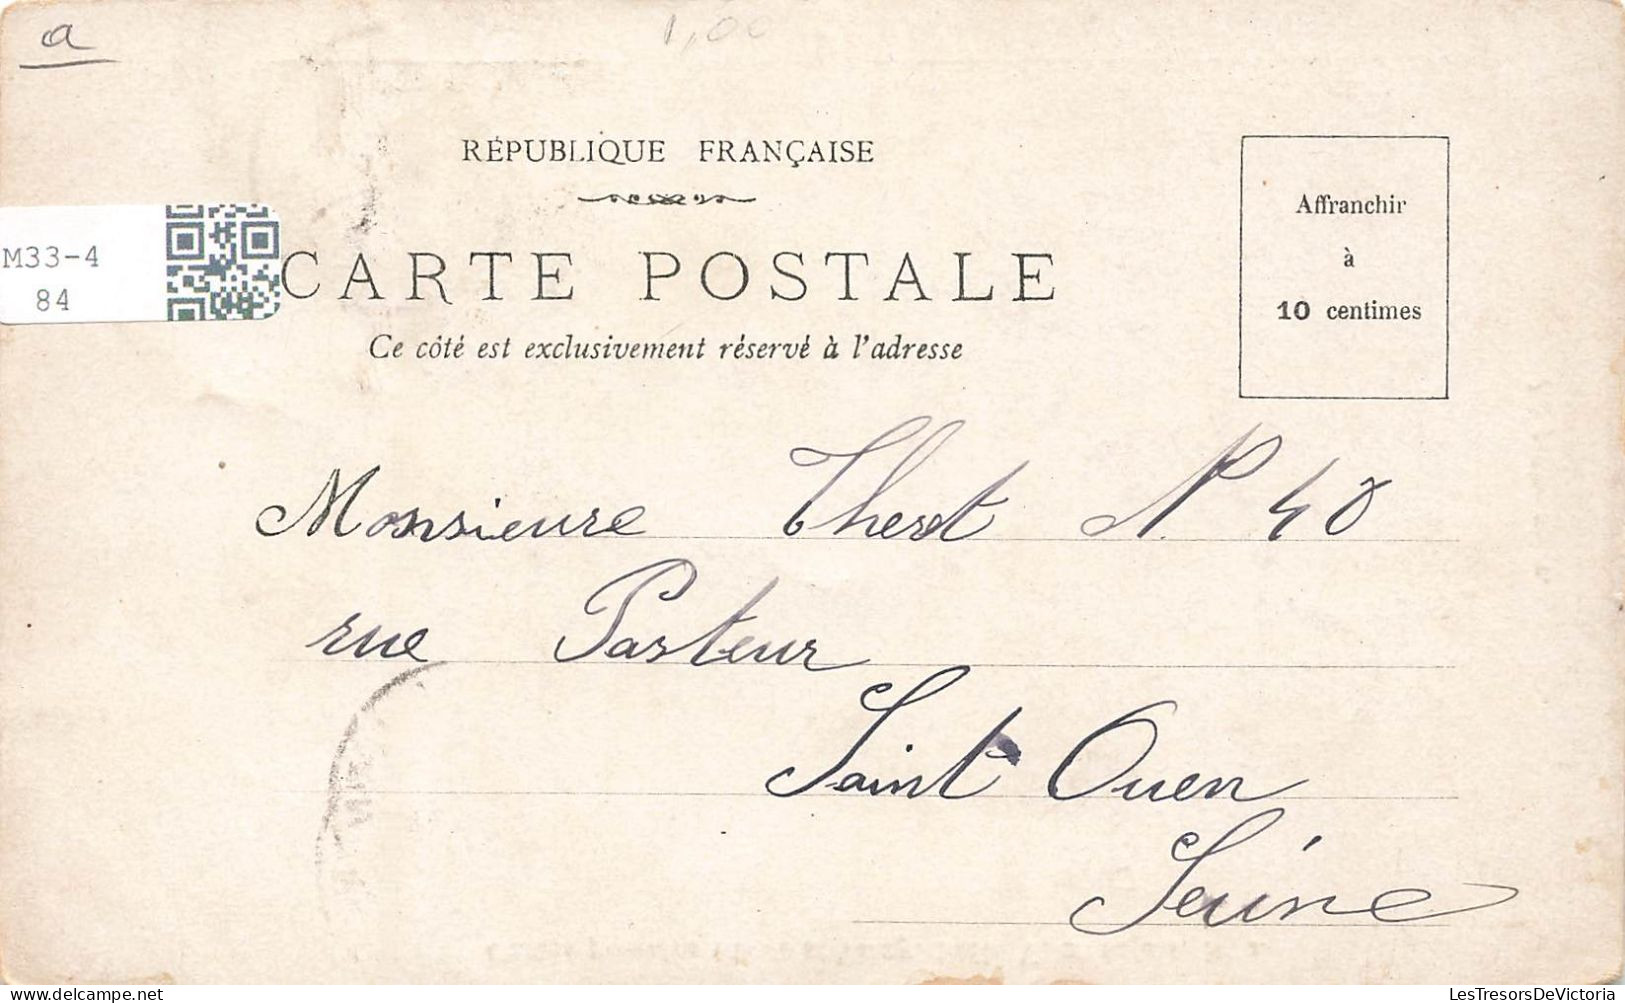 a
1,00
RÉPUBLIQUE FRANÇAISE
M33-4
84
CARTE POSTALE
Ce côté est exclusivement réservé à l'adresse
Affranchir
à
10 centimes
Monsieure Therot N. 40
rue Pasteur
Saint Ouen
Seine
LesTresorsDeVictoria
delcampe.net